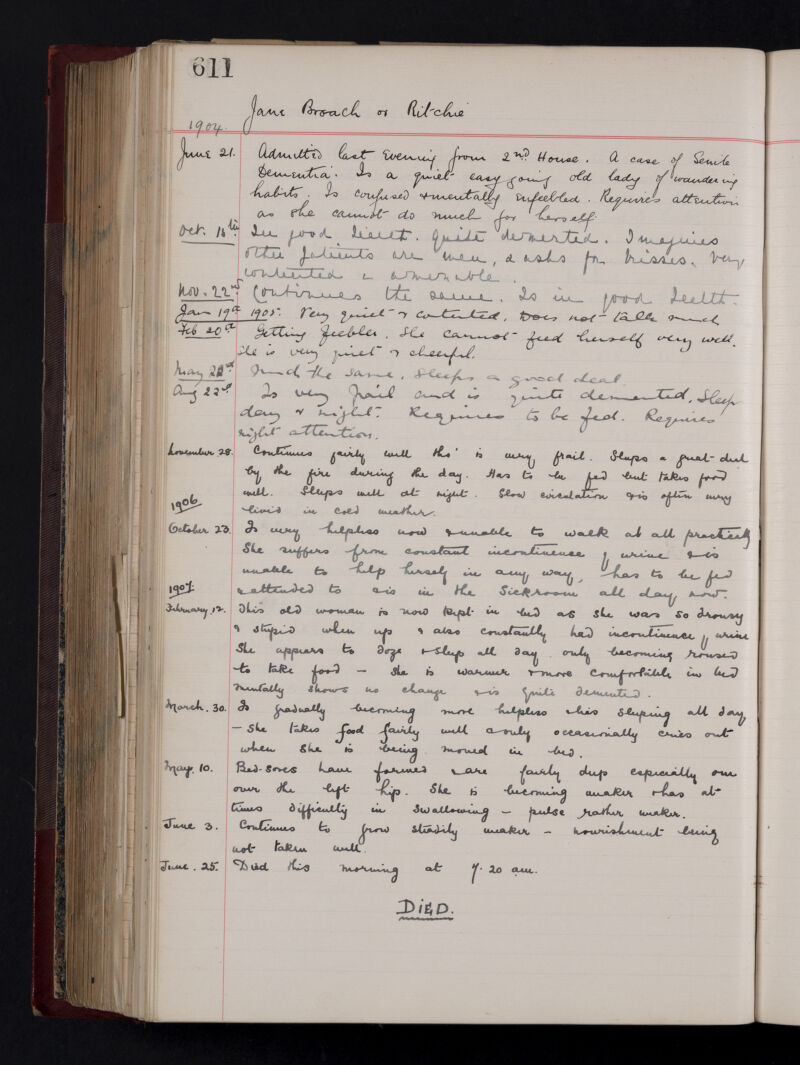 611
Jane Broach or Ritchie
1904.
June 21. Admitted last evening from 2nd House. A case of Senile
Dementia. Is a quiet easy going old lady of wandering
habits. Is confused & mentally enfeebled. Requires attention
as she cannot do much for herself.
Oct. 18th In good health. Quite demented. Imagines
other patients are men, & asks for kisses. Very
contented &
Nov. 22nd Continues the same. Is in good health.
Jan 19th 1905. Very quiet & contented. Does not talk much
Feb 20th Getting feebler. She cannot feed herself very well.
She is very quiet & cheerful.
May 22nd Much the same. Sleeps a good deal.
Aug 22nd Is very frail and is quite demented. Sleeps
day & night. Requires to be fed. Requires
night attention.
November 28. Continues fairly well tho' is very frail. Sleeps a great deal
by the fire during the day. Has to be fed but takes food
well. Sleeps well at night. Slow circulation & is often very
1906
livid in cold weather.
October 23. Is very helpless now & unable to walk at all practically
She suffers from constant incontinence of urine & is
unable to help herself in any way, has to be fed
1907.
& attended to & is in the Sickroom all day now.
February 12. This old woman is now kept in bed as she was so drowsy
& stupid when up & also constantly had incontinence of urine
She appears to doze & sleep all day only becoming roused
to take food – she is warmer & more comfortable in bed
mentally shows no change & is quite demented.
March. 30. Is gradually becoming more helpless & is sleeping all day
– She takes food fairly well & only occasionally cries out
when she is being moved in bed.
May. 10. Bed-sores have formed & are fairly deep especially one
over the left hip. She is becoming weaker & has at
times difficulty in swallowing – pulse rather weaker.
June 3. Continues to grow steadily weaker – nourishment being
not taken well.
June. 25. Died this morning at 7.20 am.
DIED.